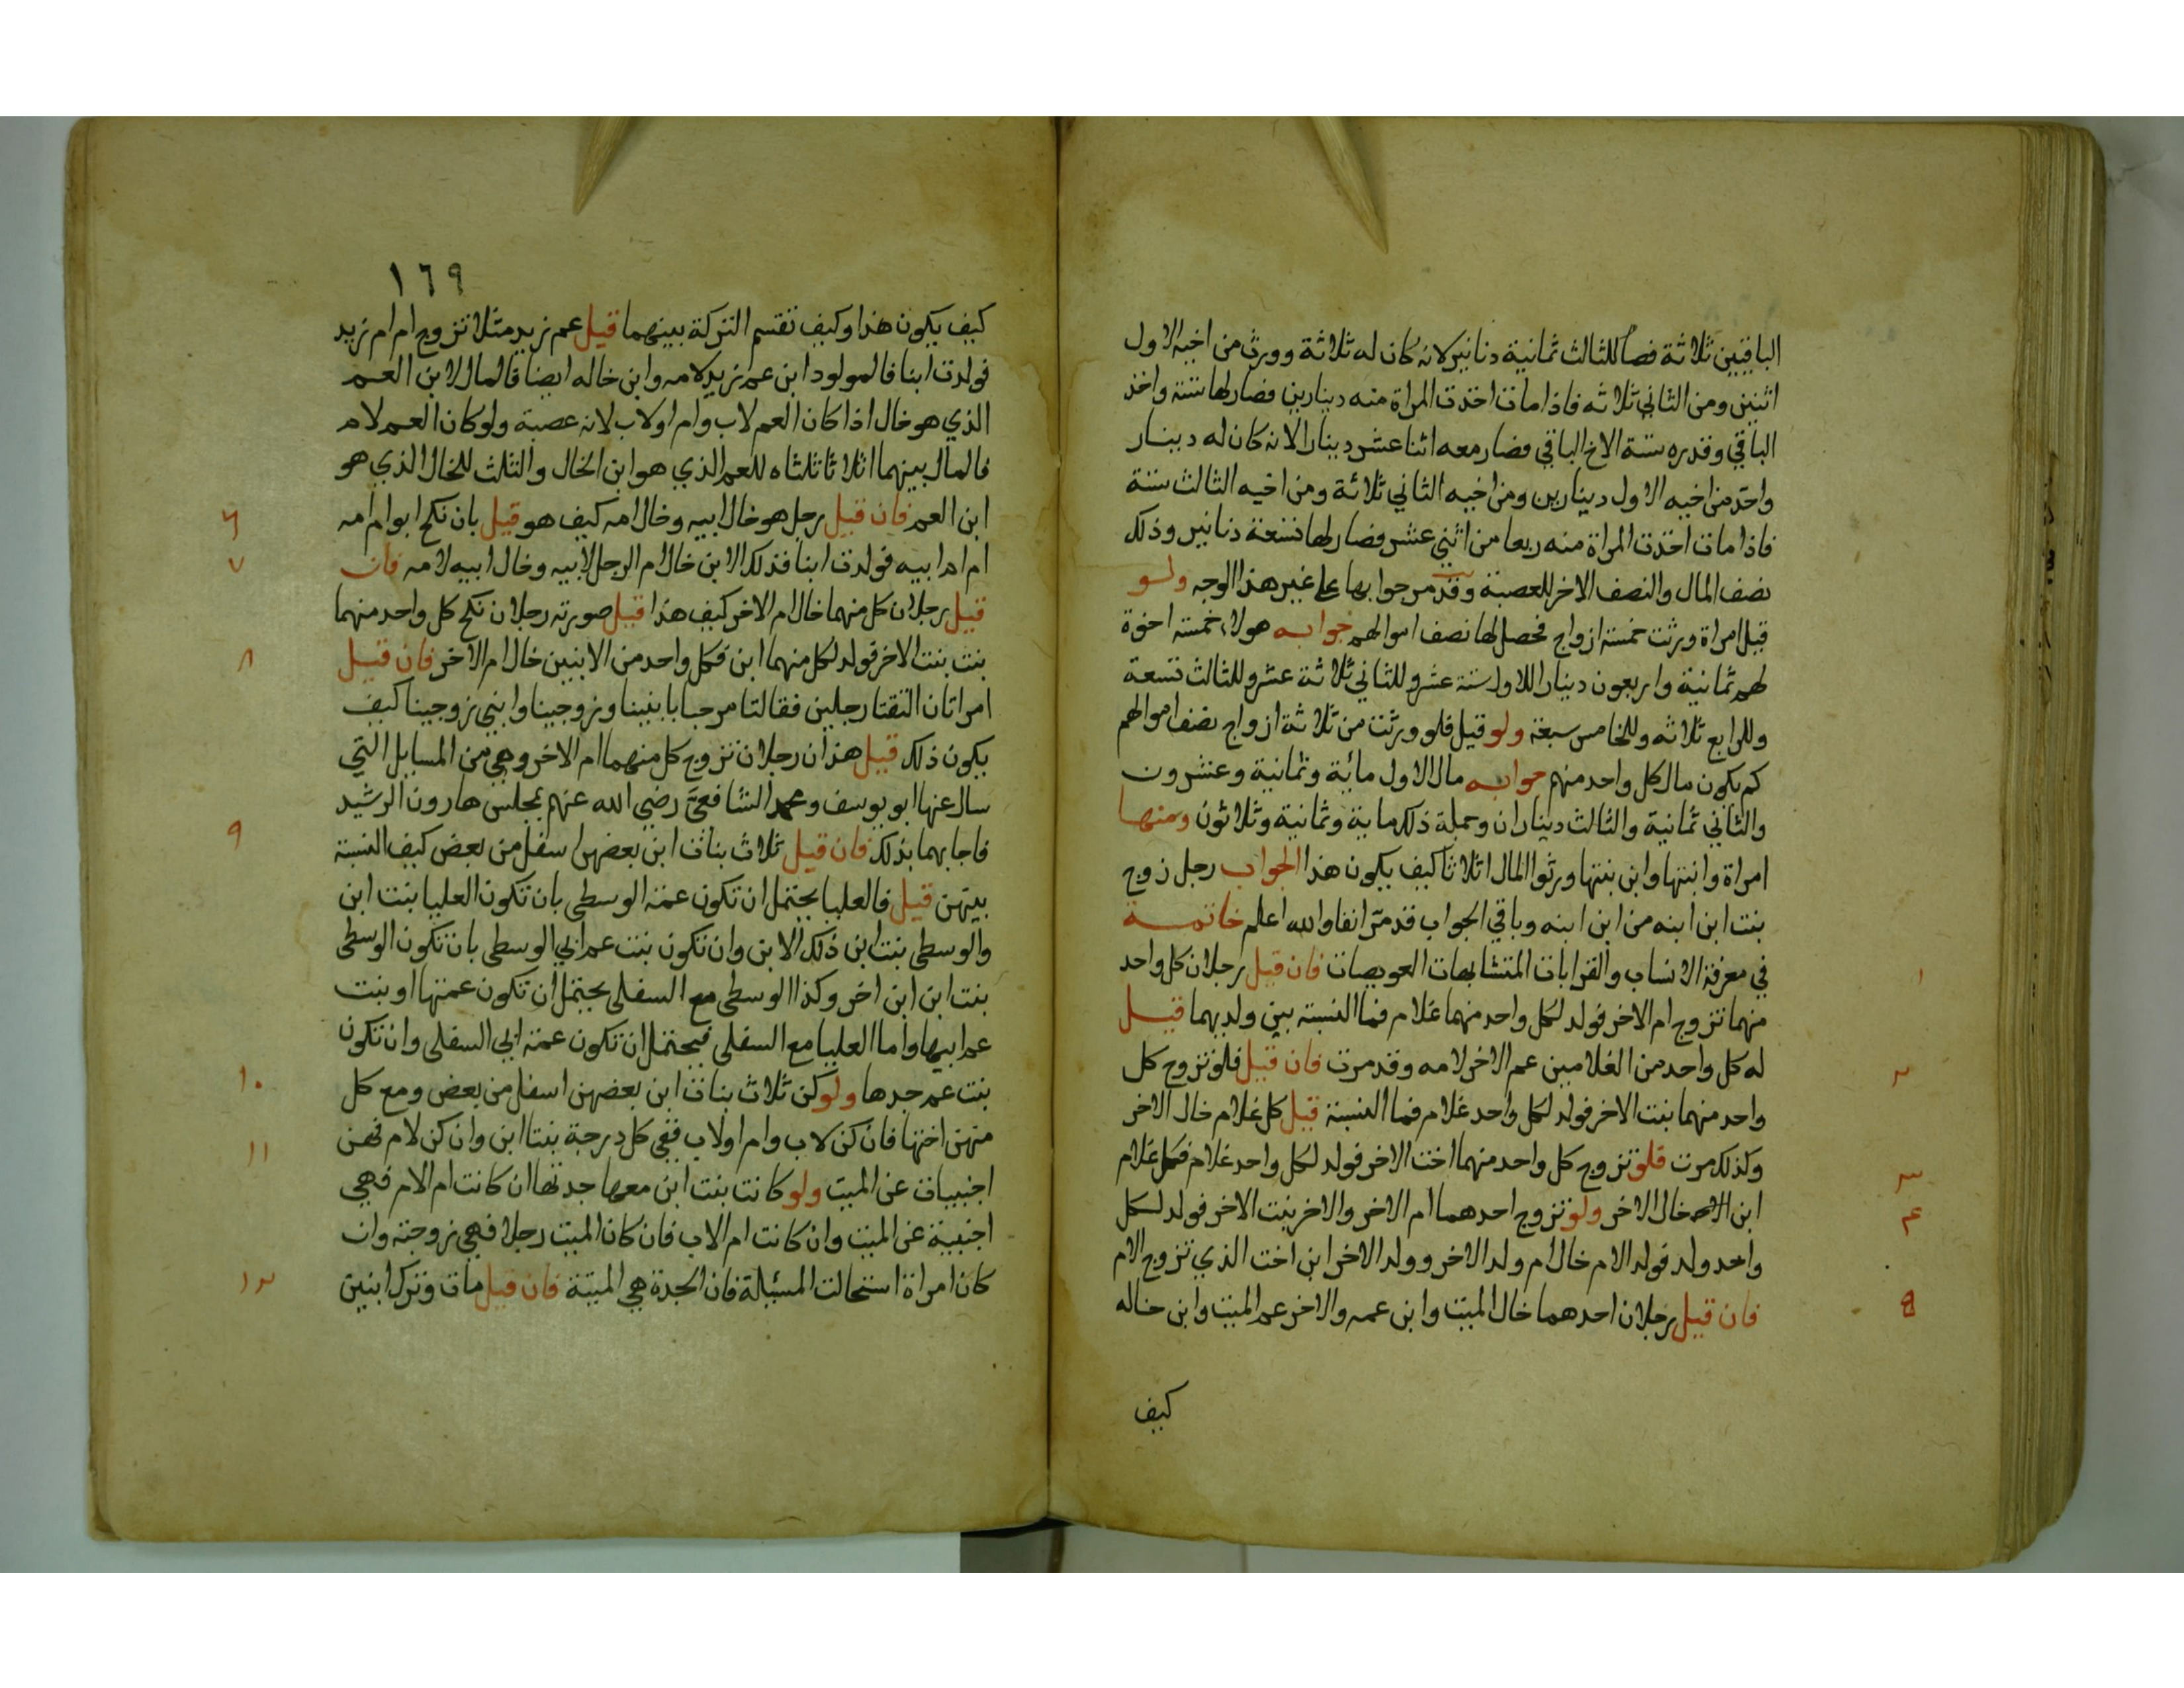 الباقيين ثلاثة فصار للثالث ثمانية دنانير لانه كان له ثلاثة وورث من اخيه الاول
اثنين ومن الثاني ثلاثه فاذا مات اخذت المراة منه دينارين فصار لها ستة واخذ
الباقي وقدره ستة الاخ الباقي فصار معه اثنا عشر دينارا لانه كان له دينار
واخذ من اخيه الاول دينارين ومن اخيه الثاني ثلاثة ومن اخيه الثالث ستة
فاذا مات اخذت المراة منه ربعا من اثني عشر فصار لها تسعة دنانير وذلك
نصف المال والنصف الاخر للعصبة وقد مر جوابها على غير هذا الوجه ولو
قيل امراة ورثت خمسة ازواج فحصل لها نصف اموالهم جوابه هولاء خمسة اخوة
لهم ثمانية واربعون دينارا للاول ستة عشر وللثاني ثلاثة عشر وللثالث تسعة
وللرابع ثلاثه وللخامس سبعة ولو قيل فلو ورثت من ثلاثة ازواج نصف اموالهم
كم يكون مال كل واحد منهم جوابه مال الاول مائة وثمانية وعشرون
والثاني ثمانية والثالث ديناران وجملة ذلك ماية وثمانية وثلاثون ومنها
امراة وابنتها وابن بنتها ورثوا المال اثلاثا كيف يكون هذا الجواب رجل زوج
بنت ابن ابنه من ابن ابنه وباقي الجواب قد مر انفا والله اعلم خاتمة
في معرفة الانساب والقرابات المتشابهات العويصات فان قيل رجلان كل واحد
١
منهما تزوج ام الاخر فولد لكل واحد منهما غلام فما النسبة بين ولديهما قيل
له كل واحد من الغلامين عم الاخر لامه وقد مرت فان قيل فلو تزوج كل
٢
واحد منهما بنت الاخر فولد لكل واحد غلام فما النسبة قيل كل غلام خال الاخر
وكذلك مرت فلو تزوج كل واحد منهما اخت الاخر فولد لكل واحد غلام فكل غلام
٣
ابن خال الاخر ولو تزوج احدهما ام الاخر والاخر بنت الاخر فولد لكل
٤
واحد ولد فولد الام خال ام ولد الاخر وولد الاخر ابن اخت الذي تزوج الام
فان قيل رجلان احدهما خال الميت وابن عمه والاخر عم الميت وابن خاله
٥
كيف
١٦٩
كيف يكون هذا وكيف تقسم التركة بينهما قيل عم زيد مثلا تزوج ام ام زيد
فولدت ابنا فالمولود ابن عم زيد لامه وابن خاله ايضا فالمال لابن العم
الذي هو خال اذا كان العم لاب وام او لاب لانه عصبة ولو كان العم لام
فالمال بينهما اثلاثا ثلثاه للعم الذي هو ابن الخال والثلث للخال الذي هو
ابن العم فان قيل رجل هو خال ابيه وخال امه كيف هو قيل بان نكح ابو ام امه
٦
ام ام ابيه فولدت ابنا فذلك الابن خال ام الرجل لابيه وخال ابيه لامه فان
٧
قيل رجلان كل منهما خال ام الاخر كيف هذا قيل صورته رجلان نكح كل واحد منهما
بنت بنت الاخر فولد لكل منهما ابن فكل واحد من الابنين خال ام الاخر فان قيل
٨
امراتان التقتا رجلين فقالتا مرحبا بابنينا وزوجينا وابني زوجينا كيف
يكون ذلك قيل هذان رجلان تزوج كل منهما ام الاخر وهي من المسايل التي
سال عنها ابو يوسف ومحمد الشافعي رضي الله عنهم بمجلس هارون الرشيد
فاجابهما بذلك فان قيل ثلاث بنات ابن بعضهن اسفل من بعض كيف النسبة
٩
بينهن قيل فالعليا يحتمل ان تكون عمة الوسطى بان تكون العليا بنت ابن
والوسطى بنت ابن ذلك الابن وان تكون بنت عم ابي الوسطى بان تكون الوسطى
بنت ابن ابن اخر وكذا الوسطى مع السفلى يحتمل ان تكون عمتها او بنت
عم ابيها واما العليا مع السفلى فيحتمل ان تكون عمة ابي السفلى وان تكون
بنت عم جدها ولو كن ثلاث بنات ابن بعضهن اسفل من بعض ومع كل
١٠
منهن اختها فان كن لاب وام او لاب ففي كل درجة بنتا ابن وان كن لام فهن
١١
اجنبيات عن الميت ولو كانت بنت ابن معها جدتها ان كانت ام الام فهي
اجنبية عن الميت وان كانت ام الاب فان كان الميت رجلا فهي زوجته وان
كان امراة استحالت المسئلة فان الجدة هي الميتة فان قيل مات وترك ابنين
١٢